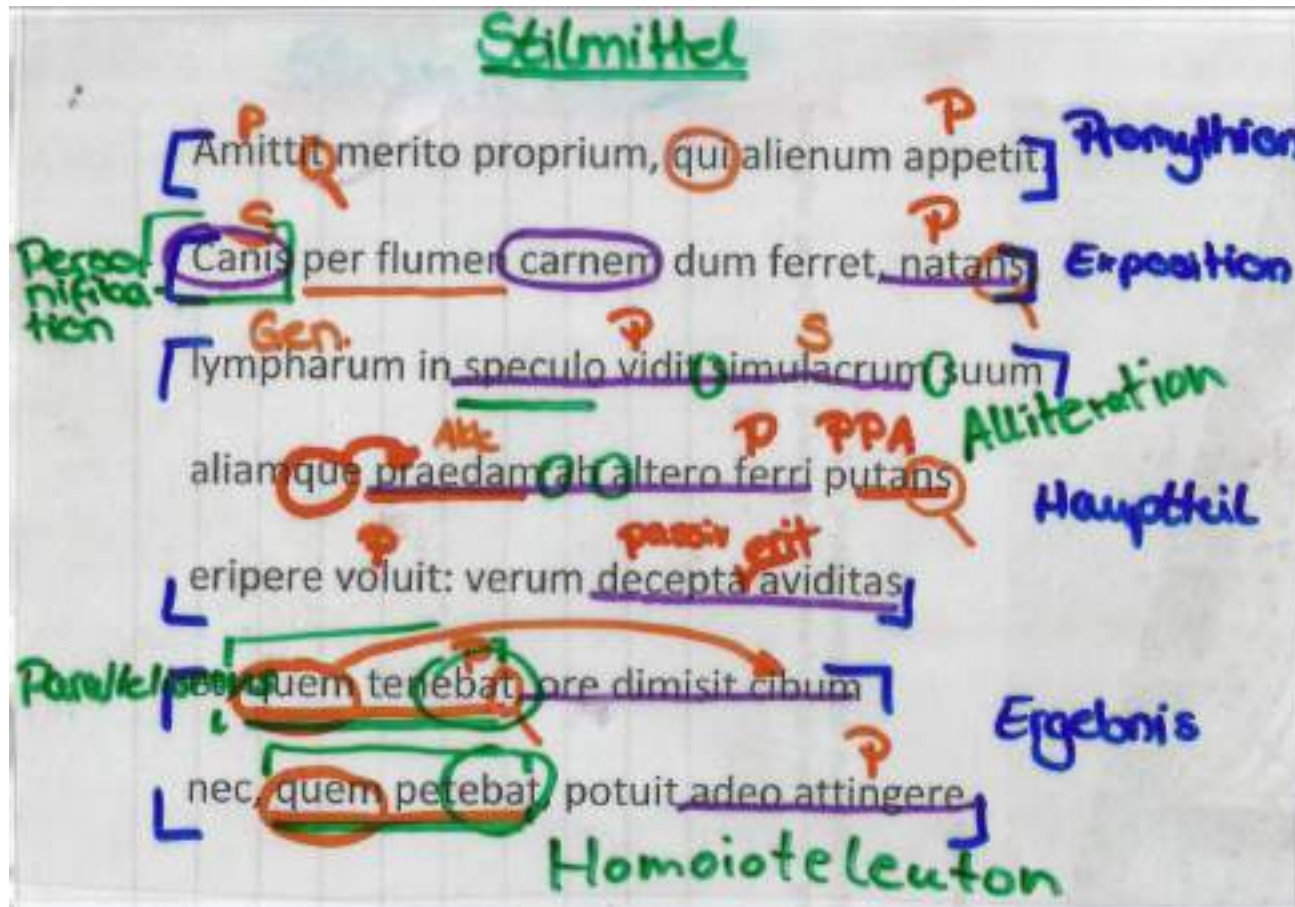 Stilmittel
P P
Amittit merito proprium, qui alienum appetit. Promythion
S P
Canis per flumen carnem dum ferret, natans Exposition
Perso-
nifika-
tion
Gen. P S
lympharum in speculo vidit simulacrum suum
Alliteration
Akk P PPA
aliamque praedam ab altero ferri putans
Hauptteil
P passiv
eripere voluit: verum decepta aviditas
P
Parallelismus quem tenebat, ore dimisit cibum
Ergebnis
P
nec, quem petebat, potuit adeo attingere
Homoioteleuton